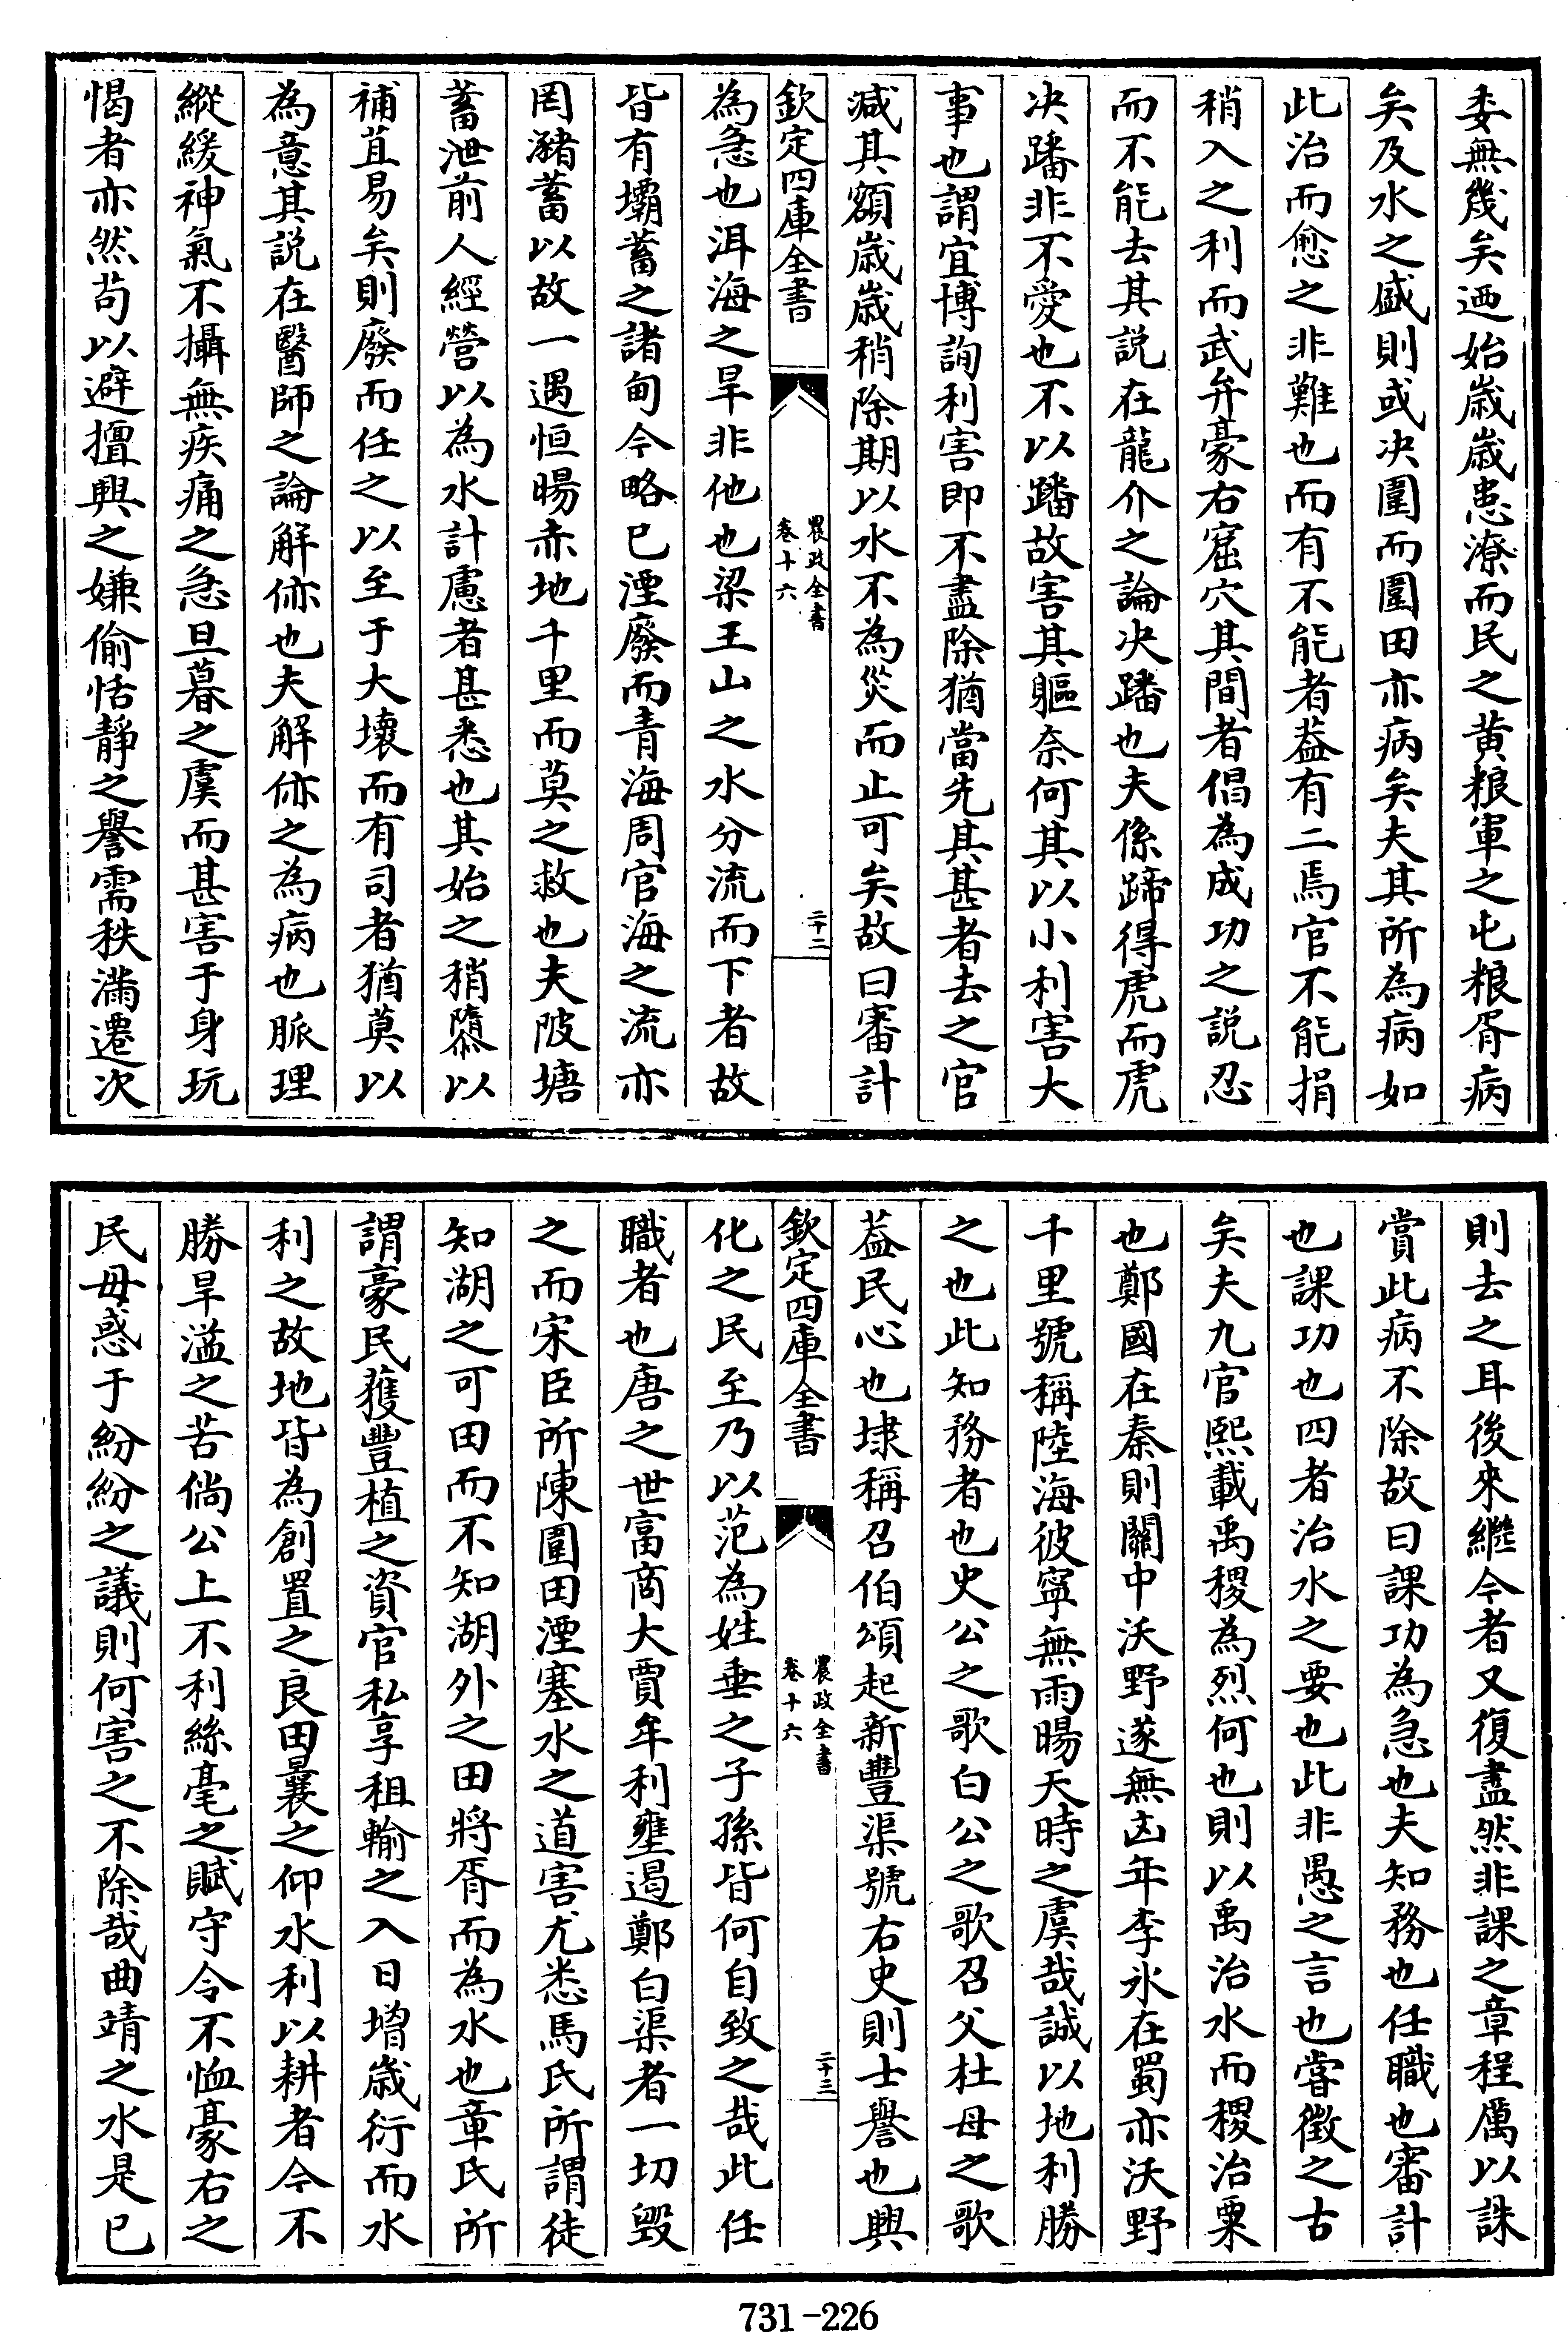 委無幾矣迺始歳歳患潦而民之黄粮軍之屯粮胥病
矣及水之盛則或决圍而圍田亦病矣夫其所為病如
此治而愈之非難也而有不能者葢有二焉官不能捐
稍入之利而武弁豪右窟穴其間者倡為成功之説忍
而不能去其説在龍介之論决蹯也夫係蹄得虎而虎
决蹯非不愛也不以蹯故害其軀奈何其以小利害大
事也謂宜博詢利害即不盡除猶當先其甚者去之官
減其額歳歳稍除期以水不為災而止可矣故曰審計
欽定四庫全書
農政全書
卷十六
二十二
為急也洱海之旱非他也梁王山之水分流而下者故
皆有壩蓄之諸甸今略已湮廢而青海周官海之流亦
罔瀦蓄以故一遇恒暘赤地千里而莫之救也夫陂塘
蓄泄前人經營以為水計慮者甚悉也其始之稍隳以
補苴易矣則廢而任之以至于大壊而有司者猶莫以
為意其説在醫師之論解㑊也夫解㑊之為病也脈理
縱緩神氣不攝無疾痛之急旦暮之虞而甚害于身玩
愒者亦然苟以避擅興之嫌偷恬靜之譽需秩滿遷次
則去之耳後來繼今者又復盡然非課之章程厲以誅
賞此病不除故曰課功為急也夫知務也任職也審計
也課功也四者治水之要也此非愚之言也嘗徵之古
矣夫九官熙載禹稷為烈何也則以禹治水而稷治粟
也鄭國在秦則關中沃野遂無凶年李氷在蜀亦沃野
千里號稱陸海彼寧無雨暘天時之虞哉誠以地利勝
之也此知務者也史公之歌白公之歌召父杜母之歌
葢民心也埭稱召伯頌起新豐渠號右史則士譽也興
欽定四庫全書
農政全書
卷十六
二十三
化之民至乃以范為姓垂之子孫皆何自致之哉此任
職者也唐之世富商大賈牟利壅遏鄭白渠者一切毁
之而宋臣所陳圍田湮塞水之道害尤悉馬氏所謂徒
知湖之可田而不知湖外之田將胥而為水也章氏所
謂豪民蓷豐植之資官私享租輸之入日増歳衍而水
利之故地皆為創置之良田曩之仰水利以耕者今不
勝旱溢之苦倘公上不利絲毫之賦守令不恤豪右之
民毋惑于紛紛之議則何害之不除哉曲靖之水是已
731-226